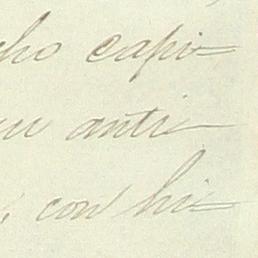 cho capi=
anti-
, con hi=